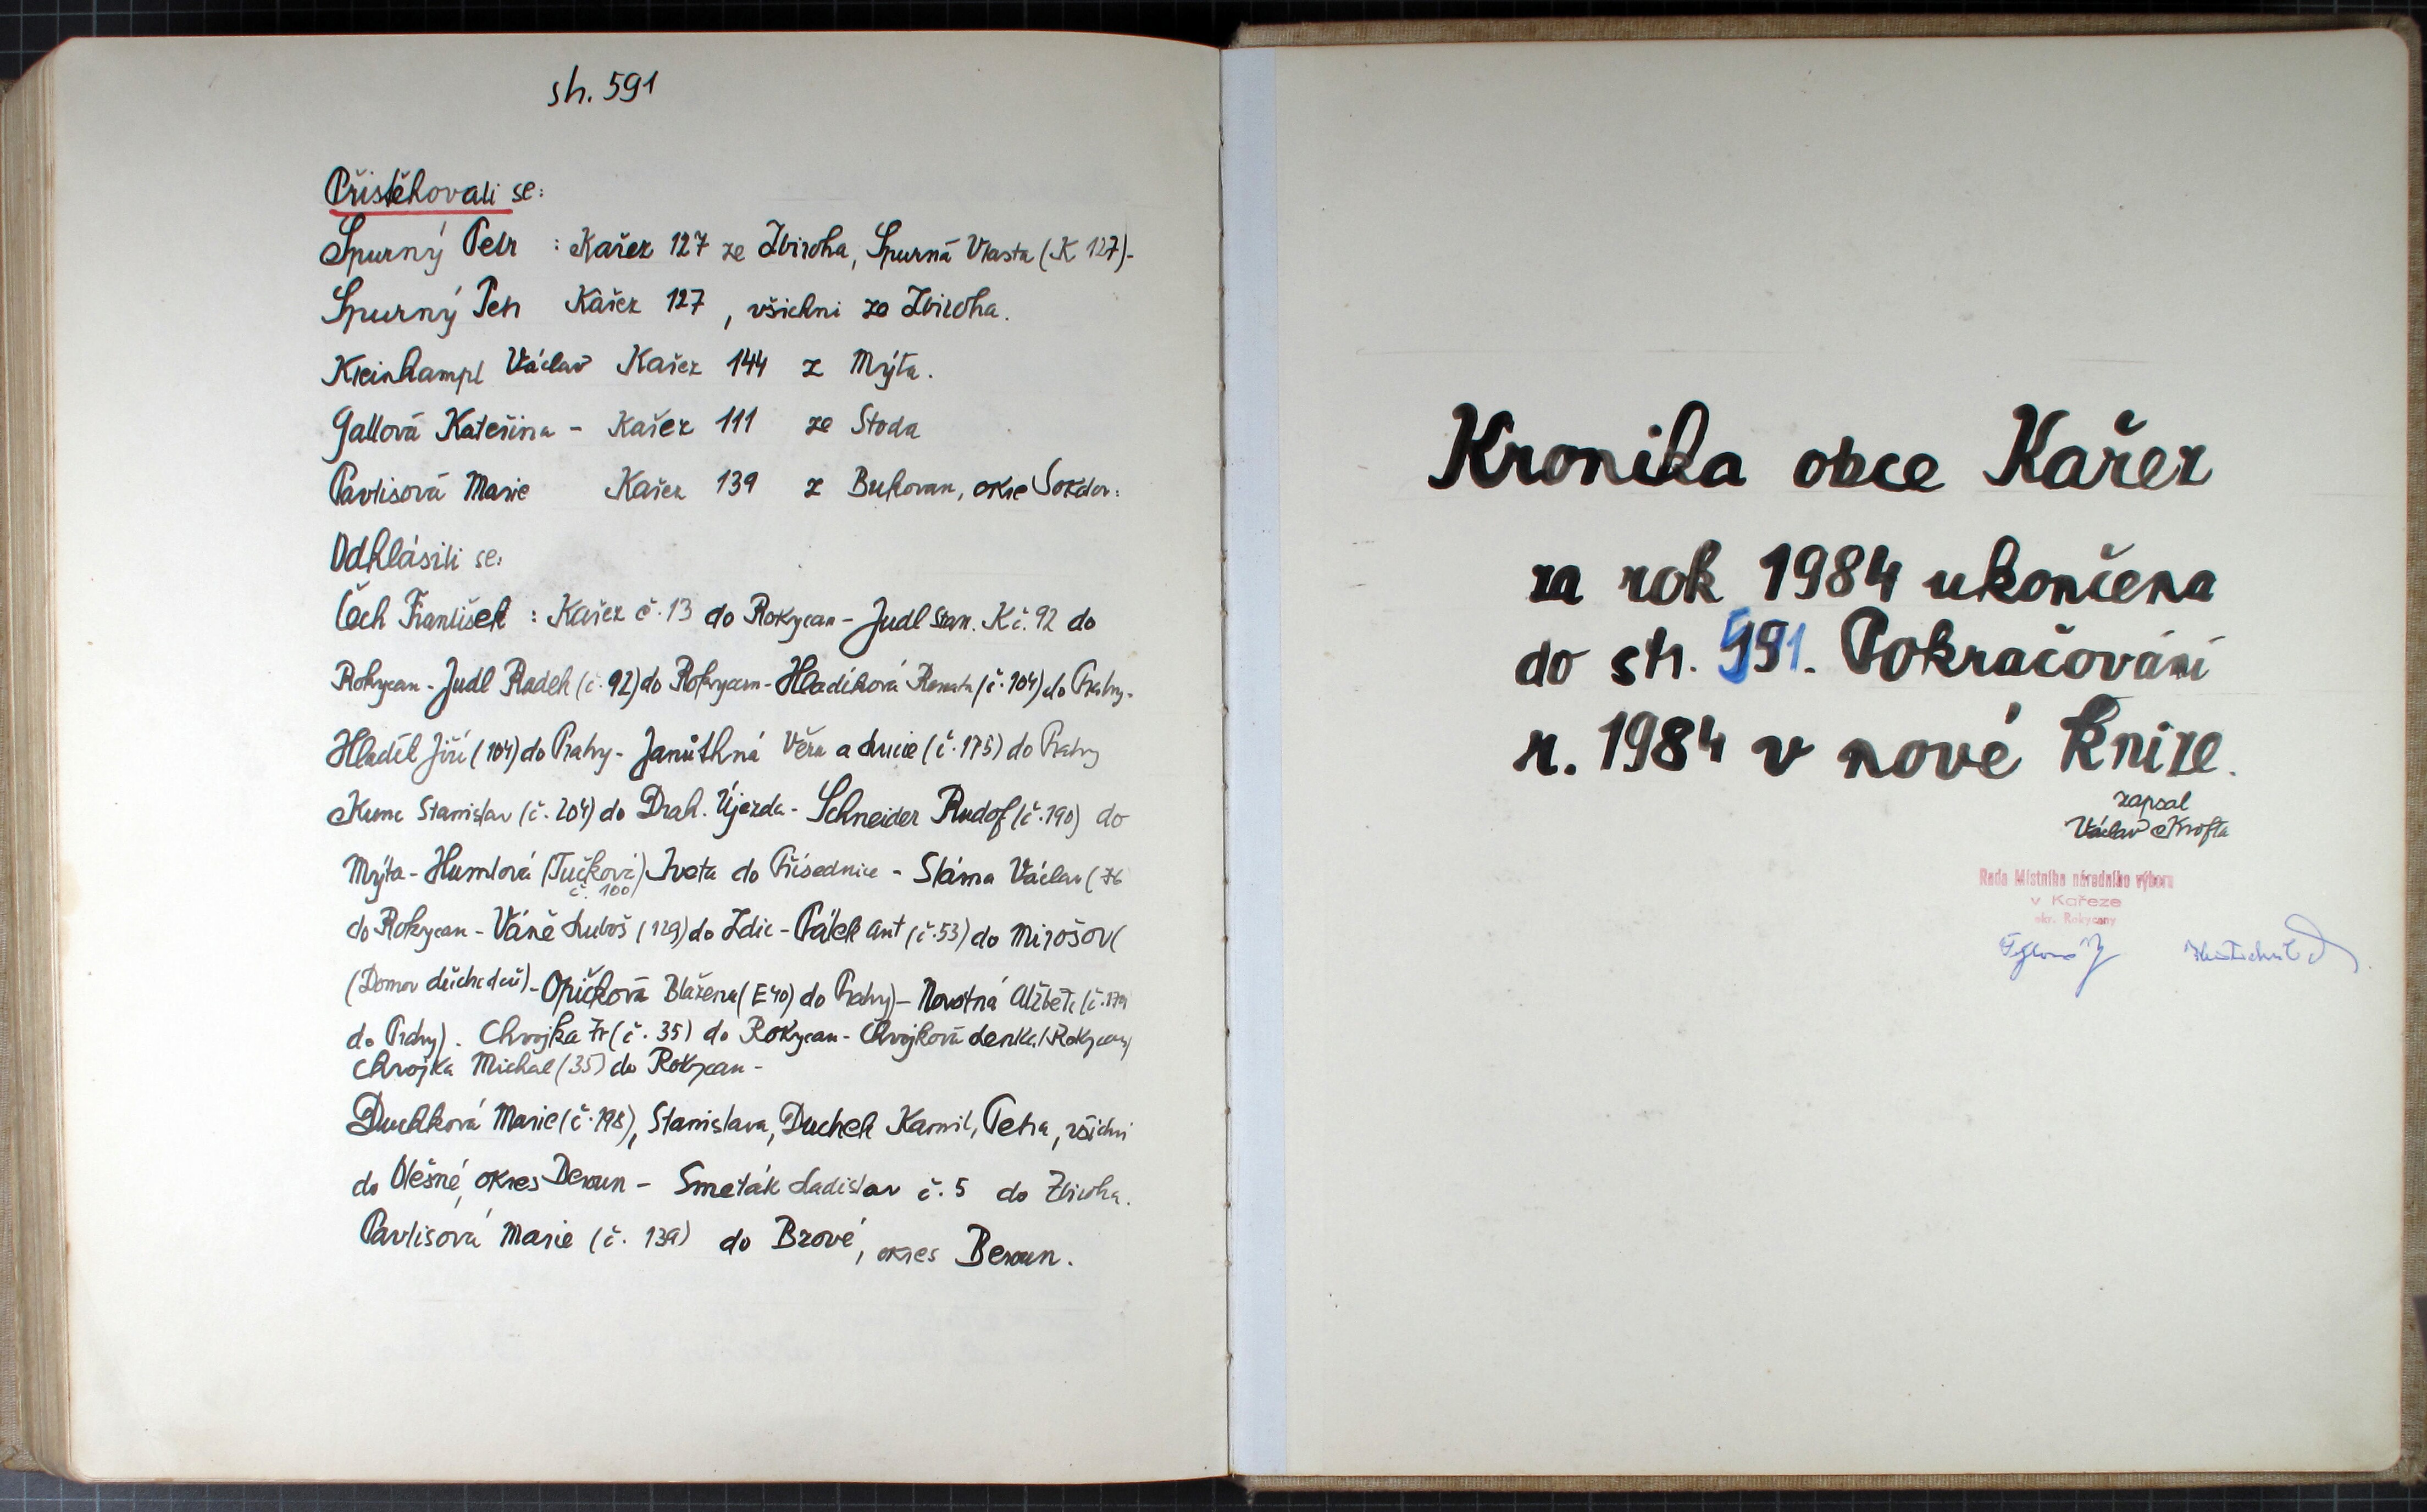 str. 591
Přistěhovali se:
Spurný Petr : Kařez 127 ze Zbiroha, Spurná Vlasta (K 127)-
Spurný Petr Kařez 127, všichni ze Zbiroha.
Kleinhampl Václav Kařez 144 z Mýta.
Gallová Kateřina - Kařez 111 ze Stoda
Pavlisová Marie Kařez 139 z Bukovan, okre Sokolov:
Odhlásili se:
Čech František : Kařez č. 13 do Rokycan - Judl Stan. K č. 92 do
Rokycan - Judl Radek (č. 92) do Rokycan - Hladíková Renata (č. 104) do Prahy.
Hladík Jiří (104) do Prahy - Věra a Lucie (č. 175) do Prahy
Kunc Stanislav (č. 204) do Drah. Újezda - Schneider Rudof (č. 190) do
Mýta - Humlová (Tučková) Iveta do Příšednice - Sláma Václav (76
č. 100
do Rokycan - Váně Luboš (129) do Zdic - Pálek Ant (č. 53) do Mirošov(
(Domov důchodců) - Opičková Blažena (E 40) do Prahy) - Novotná Alžběta (č. 179
do Prahy). Chvojka Fr (č. 35) do Rokycan - Chvojková Lenka (Rokycany)
Chvojka Michal (35) do Rokycan -
Duchková Marie (č. 198), Stanislava, Duchek Kamil, Petra, všichni
do Olešné, okres Beroun - Smeták Ladislav č. 5 do Zbiroha.
Pavlisová Marie (č. 139) do Brové, okres Beroun.
Kronika obce Kařez
za rok 1984 ukončena
do str. 591. Pokračování
r. 1984 v nové knize.
zapsal
Václav Krofta
Rada Místního národního výboru
v Kařeze
okr. Rokycany